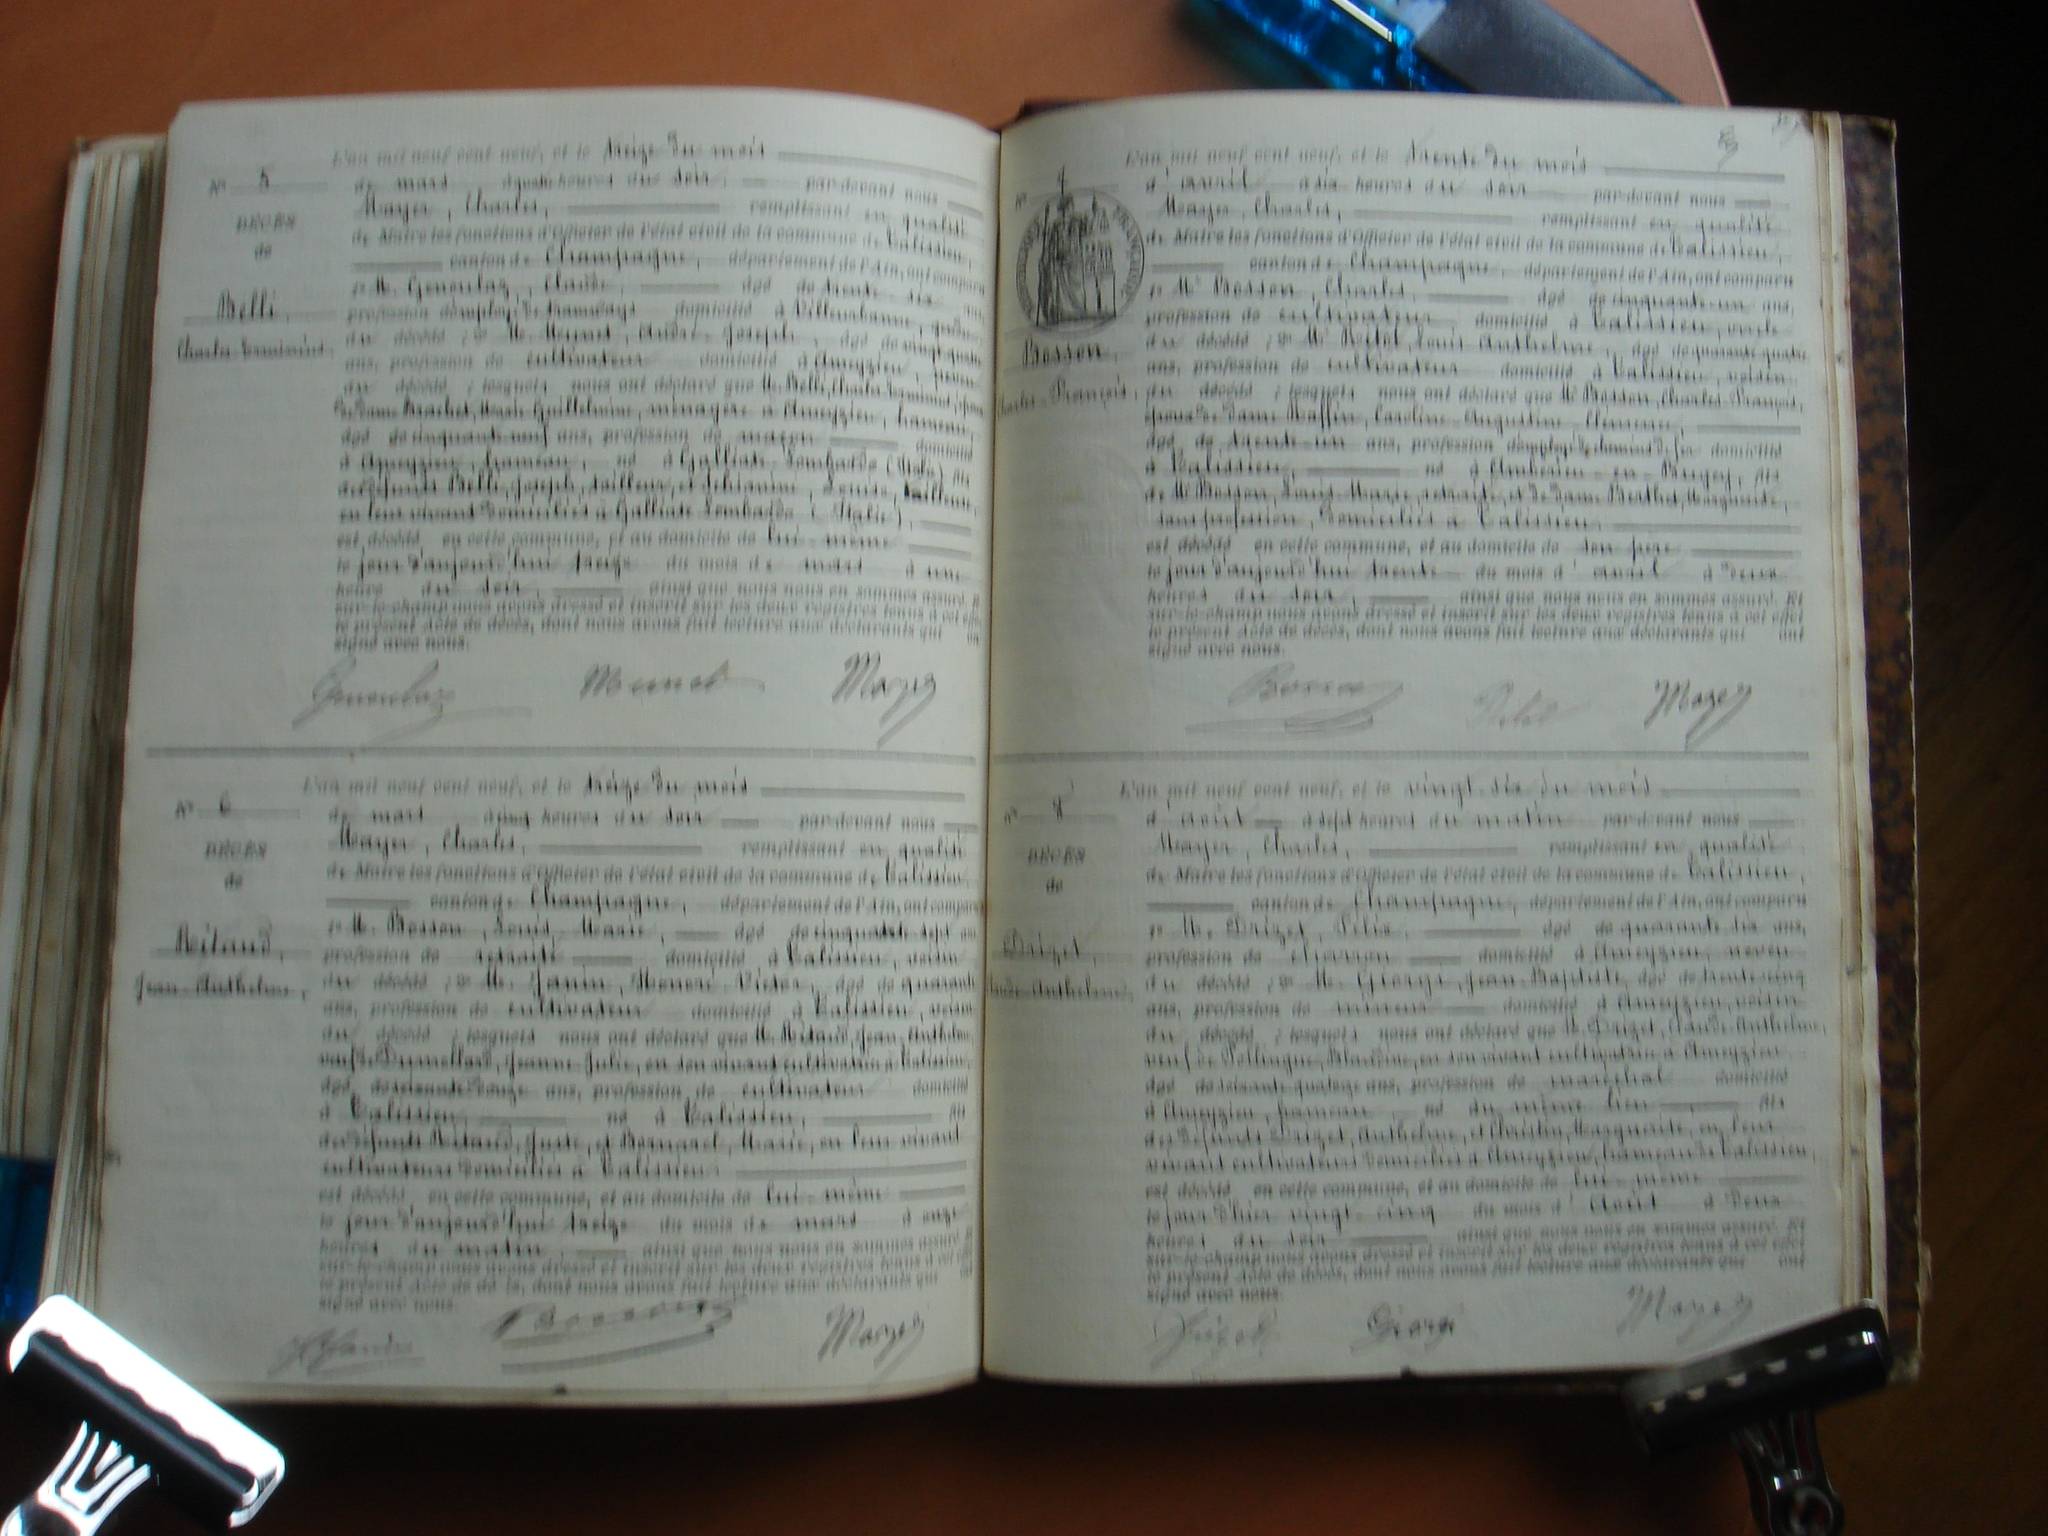 L'an mil neuf cent neuf, et le treize du mois
N° 5
de mars à quatre heures du soir, par-devant nous
Mayer, Charles, remplissant en qualité
de Maire les fonctions d'Officier de l'état civil de la commune de Talissieu,
canton de Champagne, département de l'Ain, ont comparu
DÉCÈS
de
Belli,
Charles
1° M. Genoulaz, Claude, âgé de trente-six ans,
profession d'employé de tramways domicilié à Villeurbanne, gendre
du décédé; 2° M. Meunet, André-Joseph, âgé de vingt-quatre
ans, profession de cultivateur domicilié à Ameyzieu,
du décédé; lesquels nous ont déclaré que M. Belli, Charles
de dame Brachet, Marie Guillelmine, ménagère à Ameyzieu, hameau,
âgé de cinquante-neuf ans, profession de maçon domicilié
à Ameyzieu, hameau, né à Galliate Lombardo (Italie) fils
des défunts Belli, Joseph, tailleur, et Louise,
en leur vivant domiciliés à Galliate Lombardo (Italie),
est décédé en cette commune, et au domicile de lui-même
le jour d'aujourd'hui treize du mois de mars à une
heure du soir, ainsi que nous nous en sommes assuré. Et
sur-le-champ nous avons dressé et inscrit sur les deux registres tenus à cet effet
le présent acte de décès, dont nous avons fait lecture aux déclarants qui ont
signé avec nous.
Genoulaz Meunet Mayer
L'an mil neuf cent neuf, et le treize du mois
N° 6
de mars à cinq heures du soir par-devant nous
Mayer, Charles, remplissant en qualité
de Maire les fonctions d'Officier de l'état civil de la commune de Talissieu,
canton de Champagne, département de l'Ain, ont comparu
DÉCÈS
de
Ritaud,
Jean-Anthelme,
1° M. Bosson, Louis-Marie, âgé de cinquante-sept ans
profession de retraité domicilié à Talissieu, voisin
du décédé; 2° M. Janin, Honoré-Victor, âgé de quarante
ans, profession de cultivateur domicilié à Talissieu, voisin
du décédé; lesquels nous ont déclaré que M. Ritaud, Jean-Anthelme
veuf de Dumollard, Jeanne-Julie, en son vivant cultivatrice à Talissieu,
âgé de soixante-douze ans, profession de cultivateur domicilié
à Talissieu, né à Talissieu, fils
des défunts Ritaud, Juste, et Bornarel, Marie, en leur vivant
cultivateurs domiciliés à Talissieu
est décédé en cette commune, et au domicile de lui-même
le jour d'aujourd'hui treize du mois de mars à onze
heures du matin, ainsi que nous nous en sommes assuré. Et
sur-le-champ nous avons dressé et inscrit sur les deux registres tenus à cet effet
le présent acte de décès, dont nous avons fait lecture aux déclarants qui ont
signé avec nous.
Janin Bosson Mayer
L'an mil neuf cent neuf, et le trente du mois
N°
d'avril à six heures du soir par-devant nous
Mayer, Charles, remplissant en qualité
de Maire les fonctions d'Officier de l'état civil de la commune de Talissieu,
canton de Champagne, département de l'Ain, ont comparu
Bosson,
Charles-François,
1° M. Bosson, Charles, âgé de cinquante-un ans,
profession de cultivateur, domicilié à Talissieu, oncle
du décédé; 2° M. Louis Anthelme, âgé de quarante-quatre
ans, profession de cultivateur domicilié à Talissieu, voisin
du décédé; lesquels nous ont déclaré que M. Bosson, Charles-François,
époux de dame Raffin, Caroline Augustine Clémence,
âgé de trente-un ans, profession d'employé de chemin de fer domicilié
à Talissieu, né à Ambérieu-en-Bugey, fils
de M. Bosson, Louis-Marie, retraité, et de dame Berthet, Marguerite,
sans profession, domiciliés à Talissieu,
est décédé en cette commune, et au domicile de son père
le jour d'aujourd'hui trente du mois d'avril à deux
heures du soir, ainsi que nous nous en sommes assuré. Et
sur-le-champ nous avons dressé et inscrit sur les deux registres tenus à cet effet
le présent acte de décès, dont nous avons fait lecture aux déclarants qui ont
signé avec nous.
Bosson Mayer
L'an mil neuf cent neuf, et le vingt-six du mois
N° 8
d'août à sept heures du matin par-devant nous
Mayer, Charles, remplissant en qualité
de Maire les fonctions d'Officier de l'état civil de la commune de Talissieu,
canton de Champagne, département de l'Ain, ont comparu
DÉCÈS
de
Drizet,
Claude-Anthelme,
1° M. Drizet, Félix, âgé de quarante-six ans,
profession de charron domicilié à Ameyzieu, neveu
du décédé; 2° M. Giorgi, Jean-Baptiste, âgé de trente-cinq
ans, profession de mineur domicilié à Ameyzieu, voisin
du décédé; lesquels nous ont déclaré que M. Drizet, Claude-Anthelme,
veuf de Pollingue, Blandine, en son vivant cultivatrice à Ameyzieu
âgé de soixante-quatorze ans, profession de maréchal domicilié
à Ameyzieu, hameau, né du même lieu fils
des défunts Drizet, Anthelme, et Christin, Marguerite, en leur
vivant cultivateurs domiciliés à Ameyzieu, hameau de Talissieu,
est décédé en cette commune, et au domicile de lui-même
le jour d'hier vingt-cinq du mois d'Août à deux
heures du soir ainsi que nous nous en sommes assuré. Et
sur-le-champ nous avons dressé et inscrit sur les deux registres tenus à cet effet
le présent acte de décès, dont nous avons fait lecture aux déclarants qui ont
signé avec nous.
Drizet Giorgi Mayer